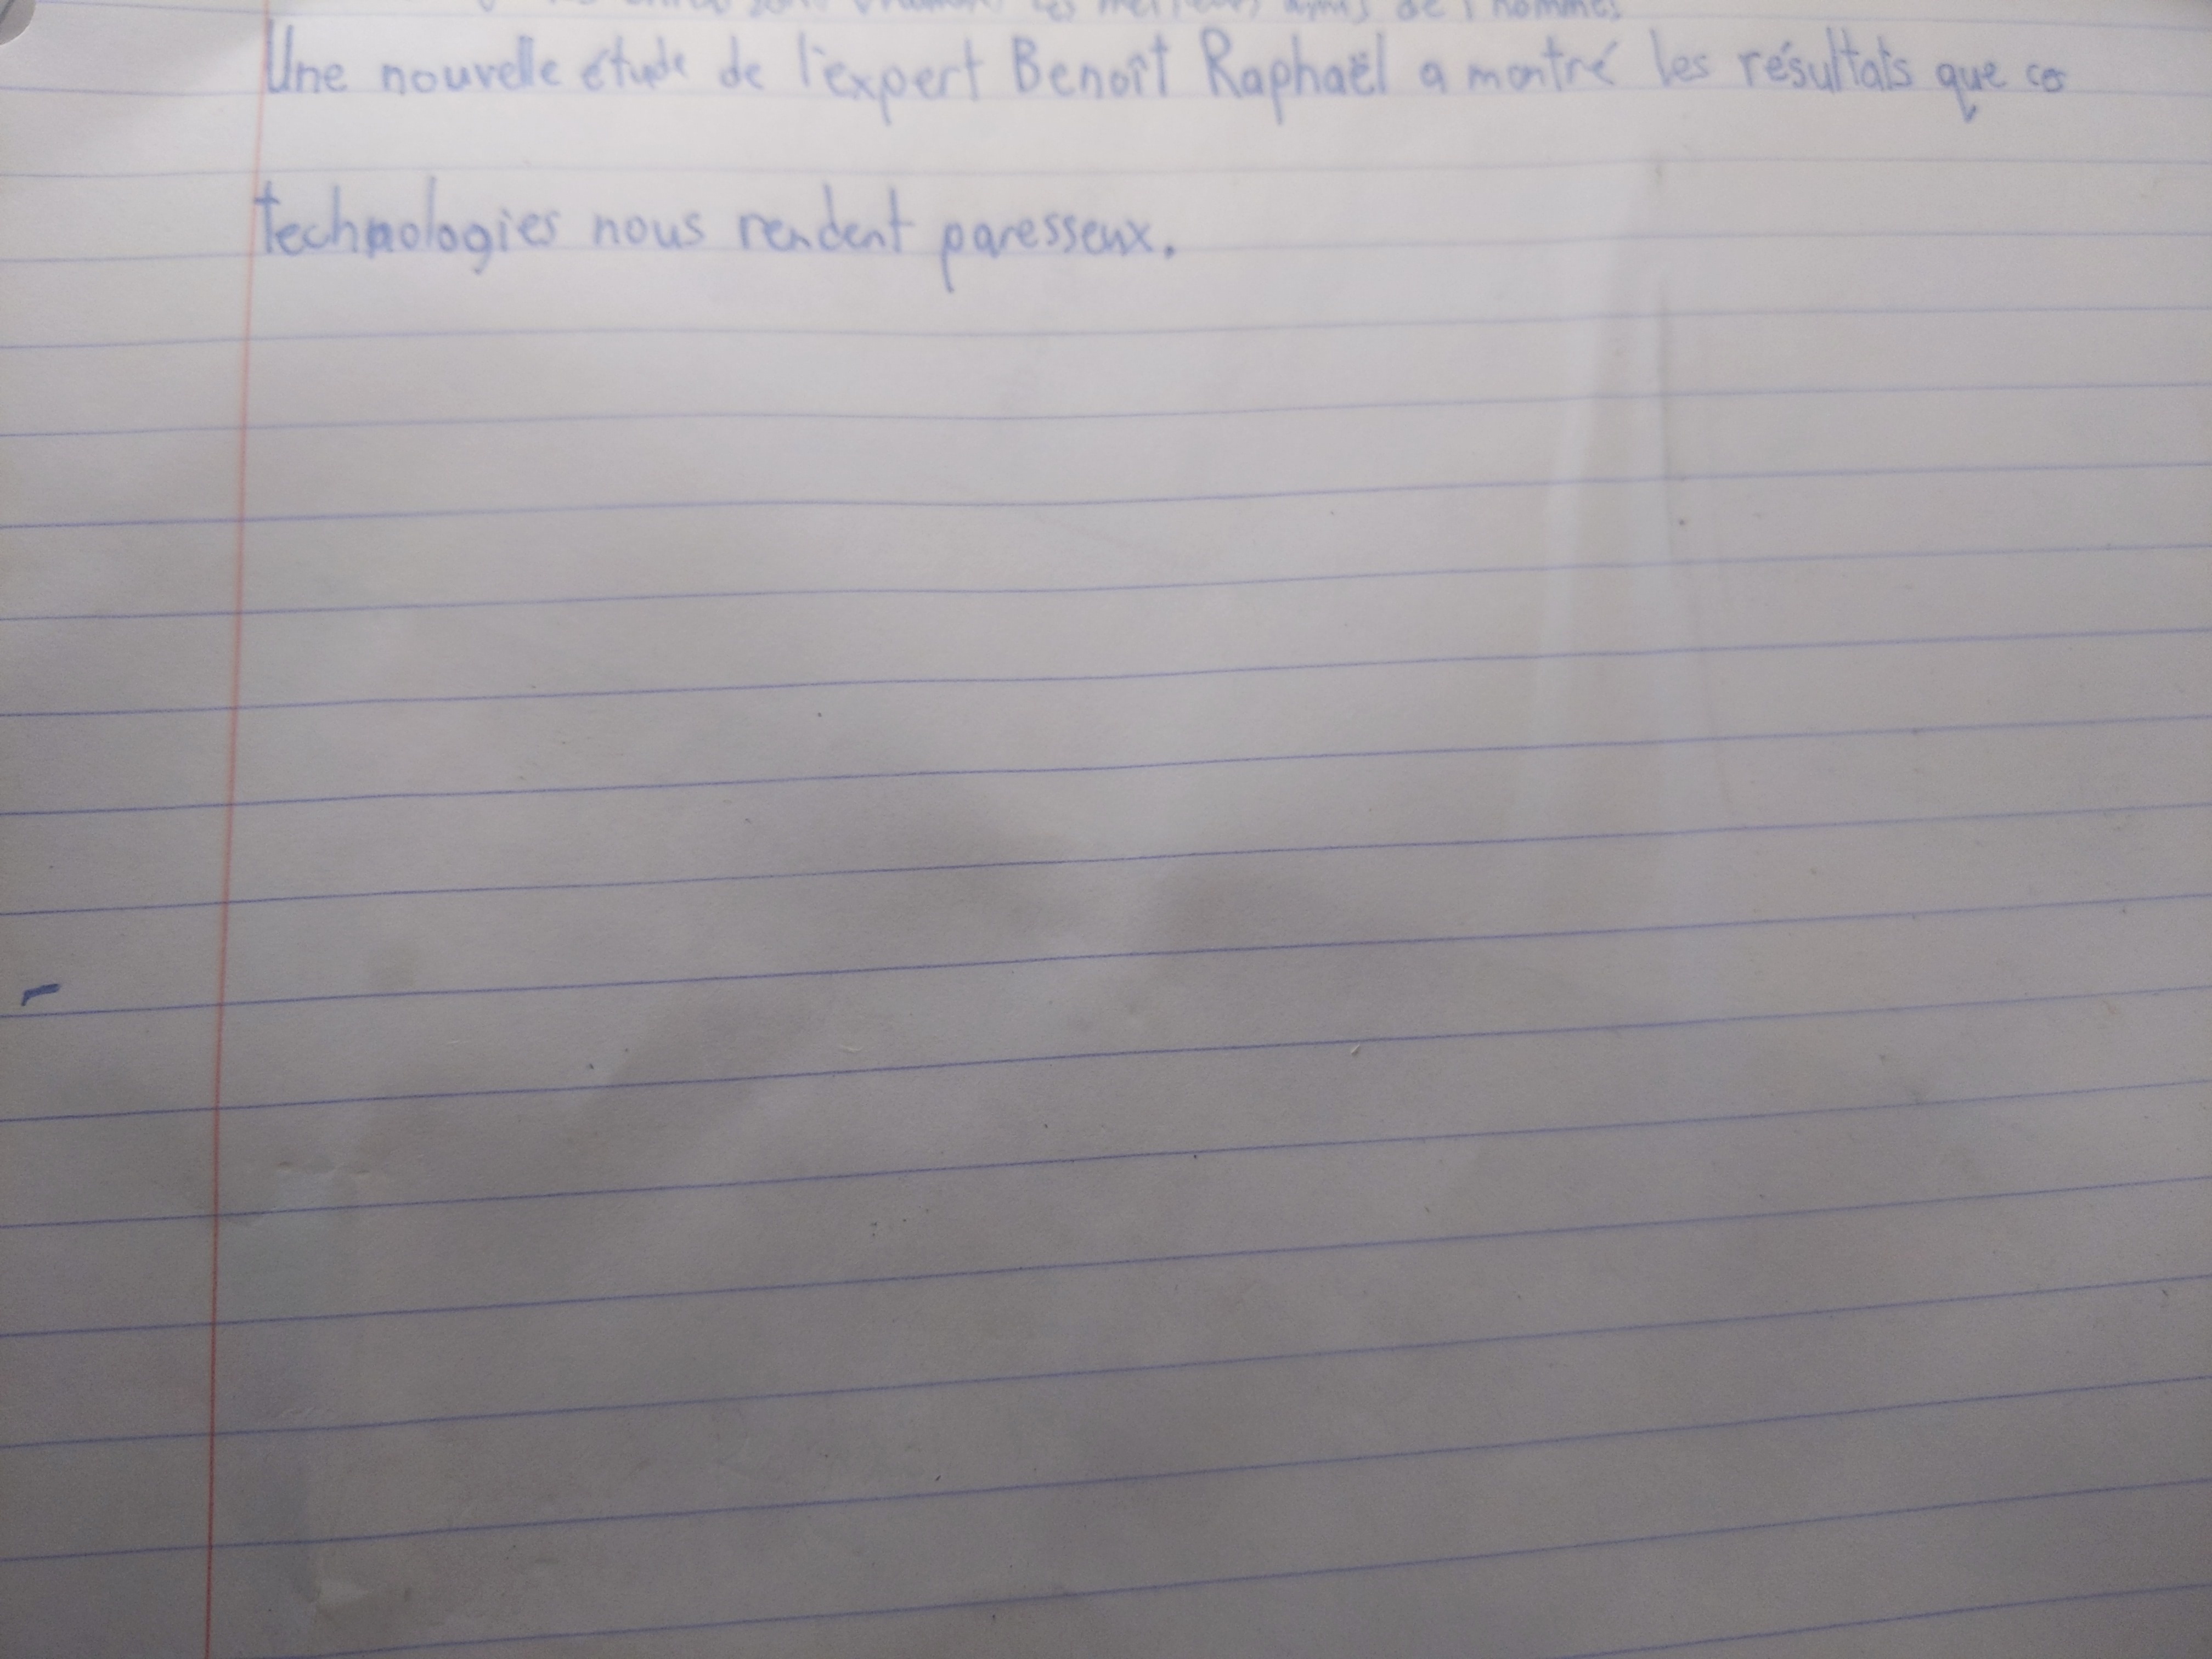 sont vraiment les meilleurs amis de l'hommes
Une nouvelle étude de l'expert Benoît Raphaël a montré les résultats que ces
technologies nous rendent paresseux.